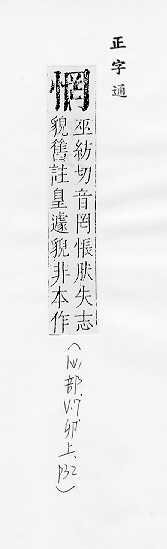 正字通
惘
巫紡切音罔悵肰失志
貌舊註皇遽貌非本作
(心部.V.7卯上.P32)